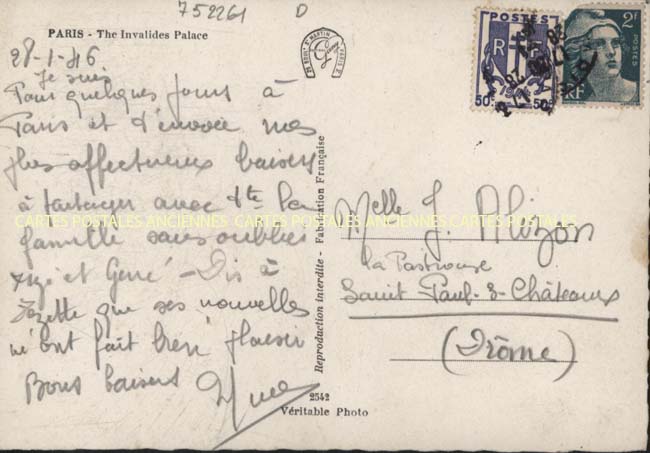 752261 D
PARIS - The Invalides Palace
28-1-46
Je suis
Pour quelques jours à
Paris et t'envoie mes
plus affectueux baisers
à partager avec tte la
famille sans oublier
et - Dis à
Zezette que ses nouvelles
m'ont fait bien plaisir
Bons baisers
2542
Véritable Photo
Reproduction interdite - Fabrication Française
POSTES
RF
50c 50c
2F
POSTES
RF
Melle J. Alizon
La
Saint Paul-3-Châteaux
(Drôme)
CARTES POSTALES ANCIENNES CARTES POSTALES ANCIENNES CARTES POSTALES